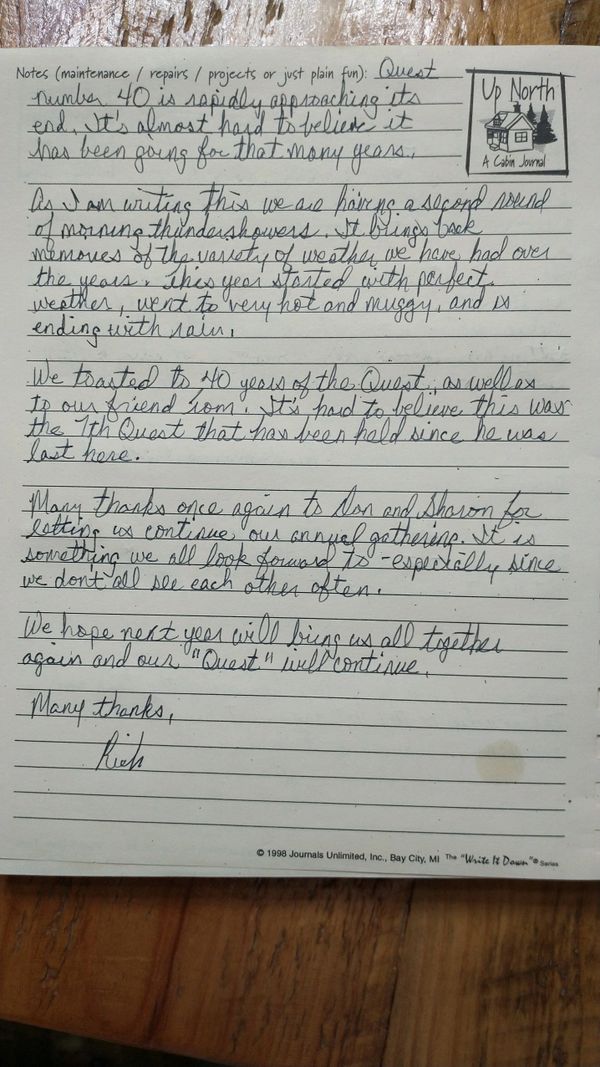 Notes (maintenance / repairs / projects or just plain fun): Quest
number 40 is rapidly approaching its
end. It's almost hard to believe it
has been going for that many years.
Up North
A Cabin Journal
As I am writing this we are having a second round
of morning thundershowers. It brings back
memories of the variety of weather we have had over
the years. This year started with perfect
weather, went to very hot and muggy, and is
ending with rain.
We toasted to 40 years of the Quest, as well as
to our friend Tom. It's hard to believe this was
the 7th Quest that has been held since he was
last here.
Many thanks once again to Dan and Sharon for
letting us continue our annual gathering. It is
something we all look forward to - especially since
we don't all see each other often.
We hope next year will bring us all together
again and our "Quest" will continue.
Many thanks,
Rich
© 1998 Journals Unlimited, Inc., Bay City, MI The "Write It Down"® Series